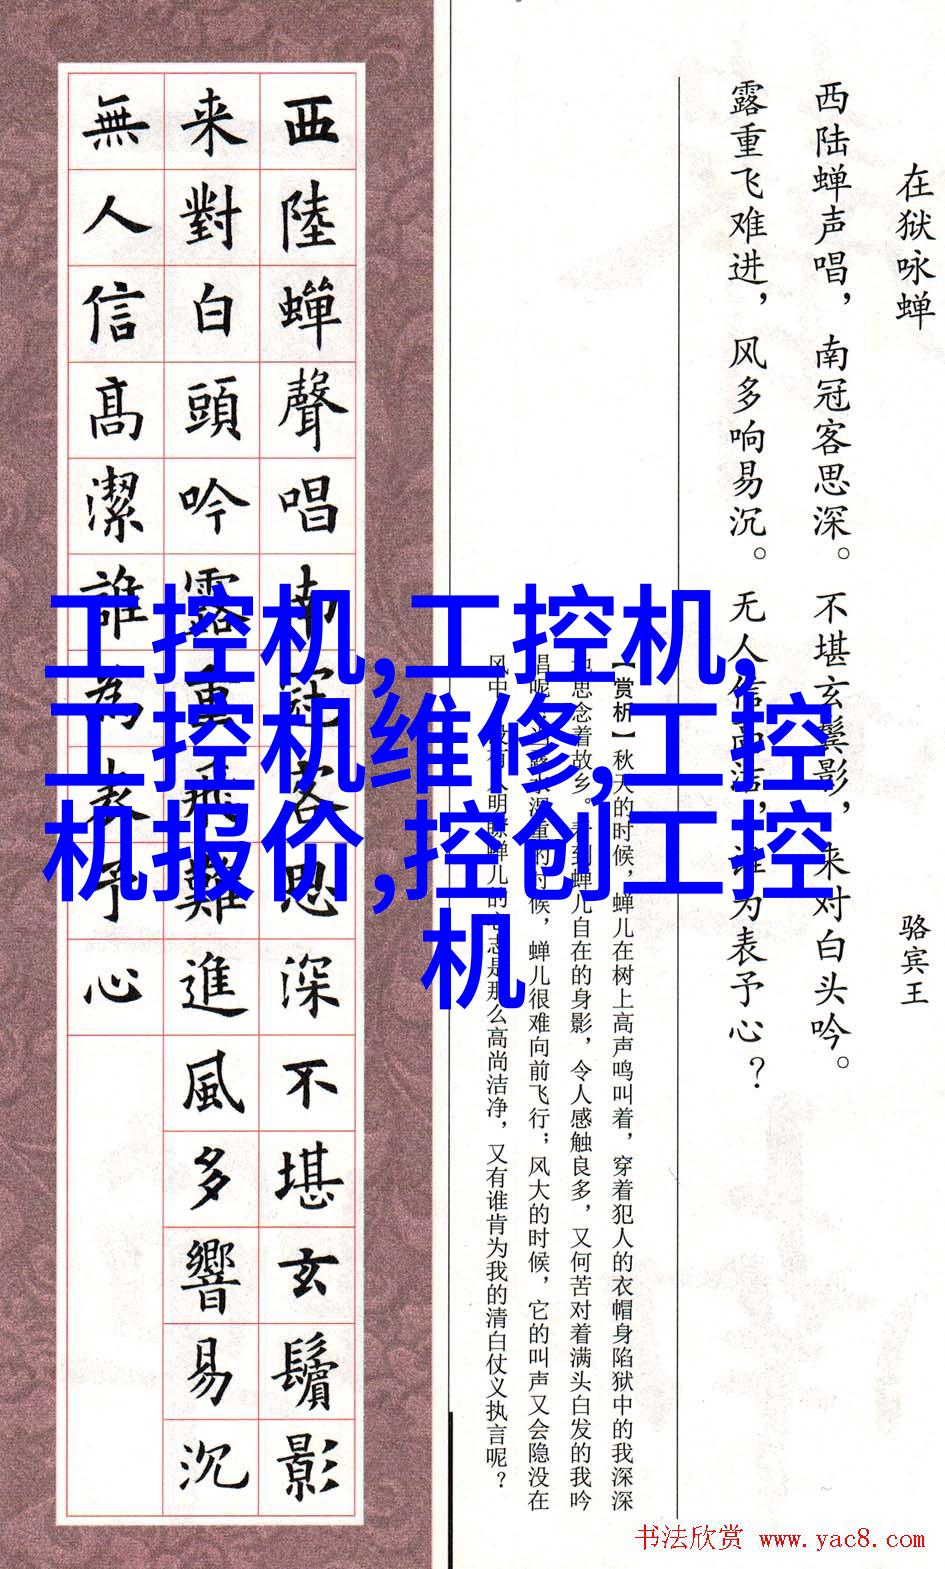 在狱咏蝉
骆宾王
西陆蝉声唱，南冠客思深。不堪玄鬓影，来对白头吟。
露重飞难进，风多响易沉。无人信高洁，谁为表予心？
【赏析】秋天的时候，蝉儿在树上高声鸣叫着，穿着犯人的衣帽身陷狱中的我深深
地思念着故乡。到蝉儿自在的身影，令人感触良多，又何苦对着满头白发的我吟
唱呢？当露水重的时候，蝉儿很难向前飞行；风大的时候，它的叫声又会隐没在
风中，没有人明瞭蝉儿的心志是那么高尚洁净，又有谁肯为我的清白仗义执言呢？
西陸蟬聲唱南冠客思深不堪玄鬢影
来對白頭吟露重飛難進風多響易沉
無人信高潔誰為表予心
工控机,工控机,
工控机维修,工控
机报价,控创工控
机
书法欣赏 www.yac8.com